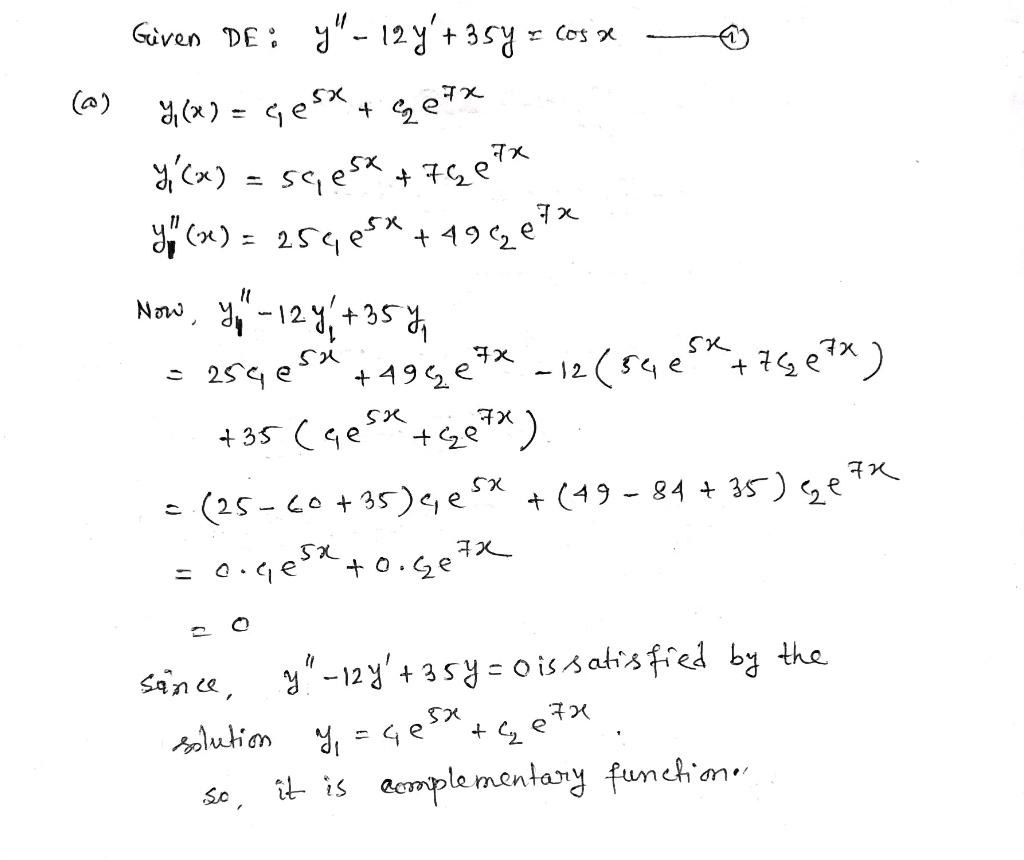 Given DE: y" - 12y' + 35y = cos x ——— ①
(a) y₁(x) = c₁e⁵ˣ + c₂e⁷ˣ
y₁'(x) = 5c₁e⁵ˣ + 7c₂e⁷ˣ
y₁"(x) = 25c₁e⁵ˣ + 49c₂e⁷ˣ
Now, y₁" - 12y₁' + 35y₁
= 25c₁e⁵ˣ + 49c₂e⁷ˣ - 12(5c₁e⁵ˣ + 7c₂e⁷ˣ)
+ 35(c₁e⁵ˣ + c₂e⁷ˣ)
= (25 - 60 + 35)c₁e⁵ˣ + (49 - 84 + 35)c₂e⁷ˣ
= 0.c₁e⁵ˣ + 0.c₂e⁷ˣ
= 0
Since, y" - 12y' + 35y = 0 is satisfied by the
solution y₁ = c₁e⁵ˣ + c₂e⁷ˣ.
so, it is complementary function.